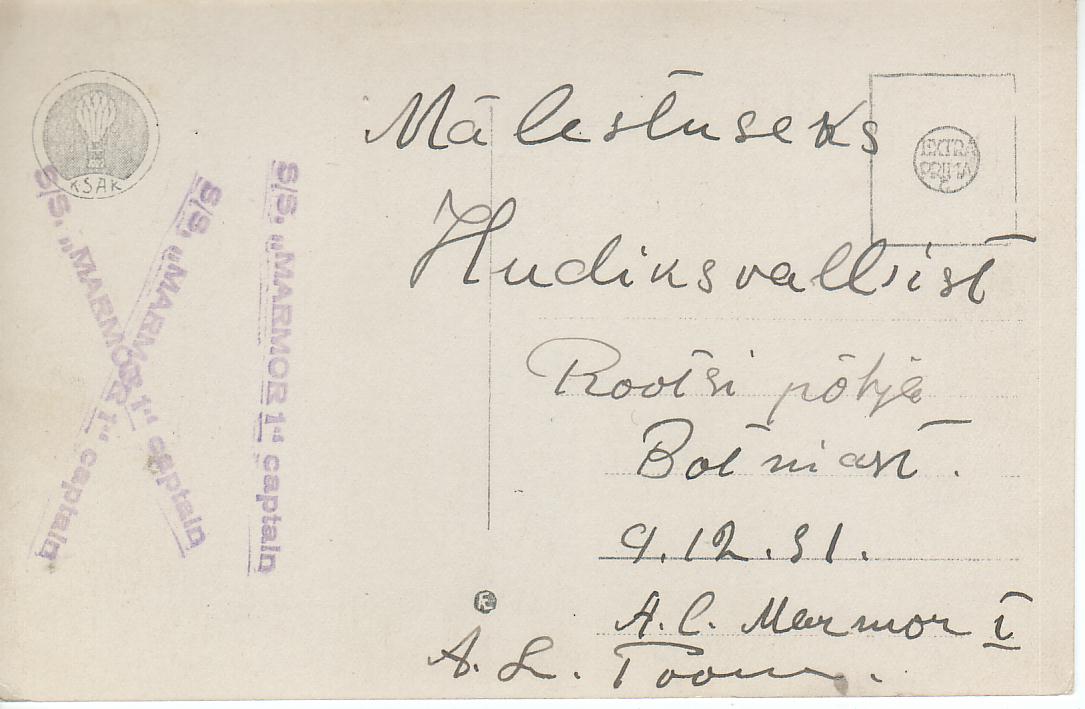 Mälestuseks
Hudiksvallist
Rootsi põhja
Botniast.
9.12.31.
A.L. Marmor I
A.L. Toom.
EXTRA
PRIMA
KSAK
S/S. „MARMOR 1“ captain
S/S. „MARMOR 1“ captain
S/S. „MARMOR 1“ captain